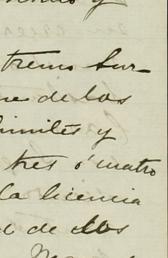 y
tremo Sur-
de los
limites y
tres ó cuatro
la licencia
de los